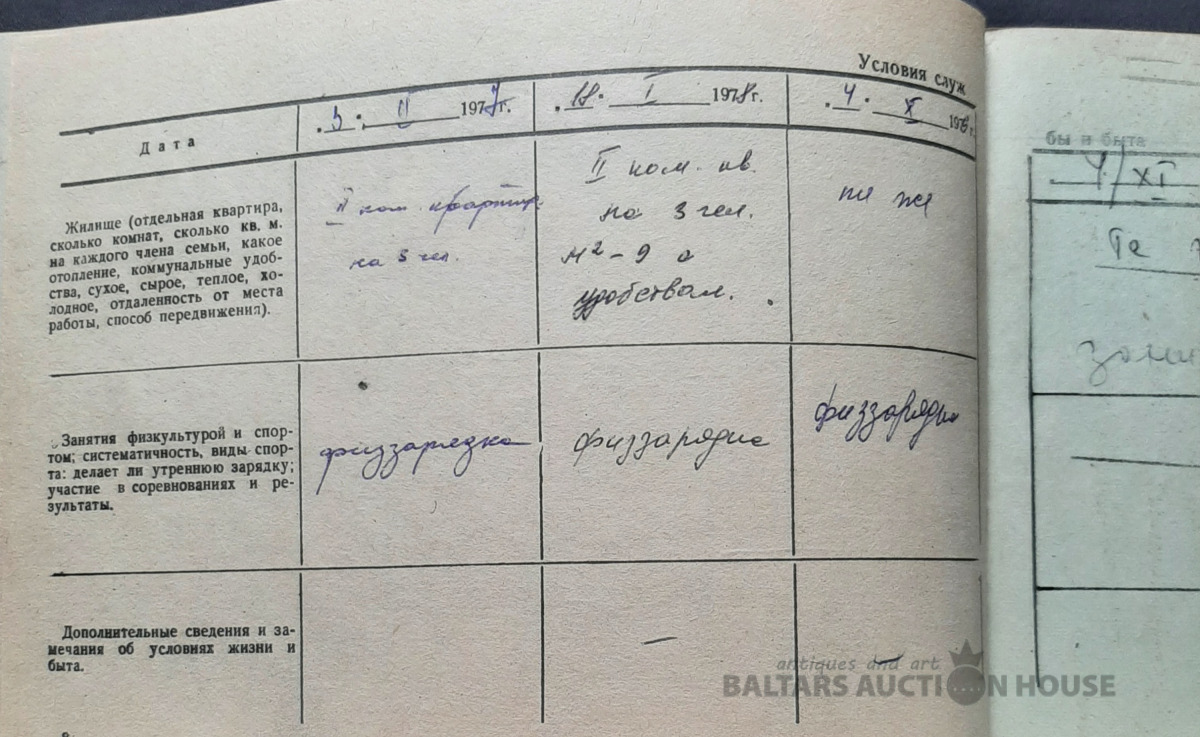 Условия служ
бы и быта
Дата
3. II 1977г.
18. I 1978г.
4. X 197
4/XI
Жилище (отдельная квартира,
сколько комнат, сколько кв. м.
на каждого члена семьи, какое
отопление, коммунальные удоб-
ства, сухое, сырое, теплое, хо-
лодное, отдаленность от места
работы, способ передвижения).
II ком. квартир.
на 3 чел.
II ком. кв.
на 3 чел.
м² - 9 с
удобствам.
Те
Занятия физкультурой и спор-
том; систематичность, виды спор-
та: делает ли утреннюю зарядку;
участие в соревнованиях и ре-
зультаты.
физзарядка
физзарядка
физзарядка
Дополнительные сведения и за-
мечания об условиях жизни и
быта.
—
—
antiques and art
BALTARS AUCTION HOUSE